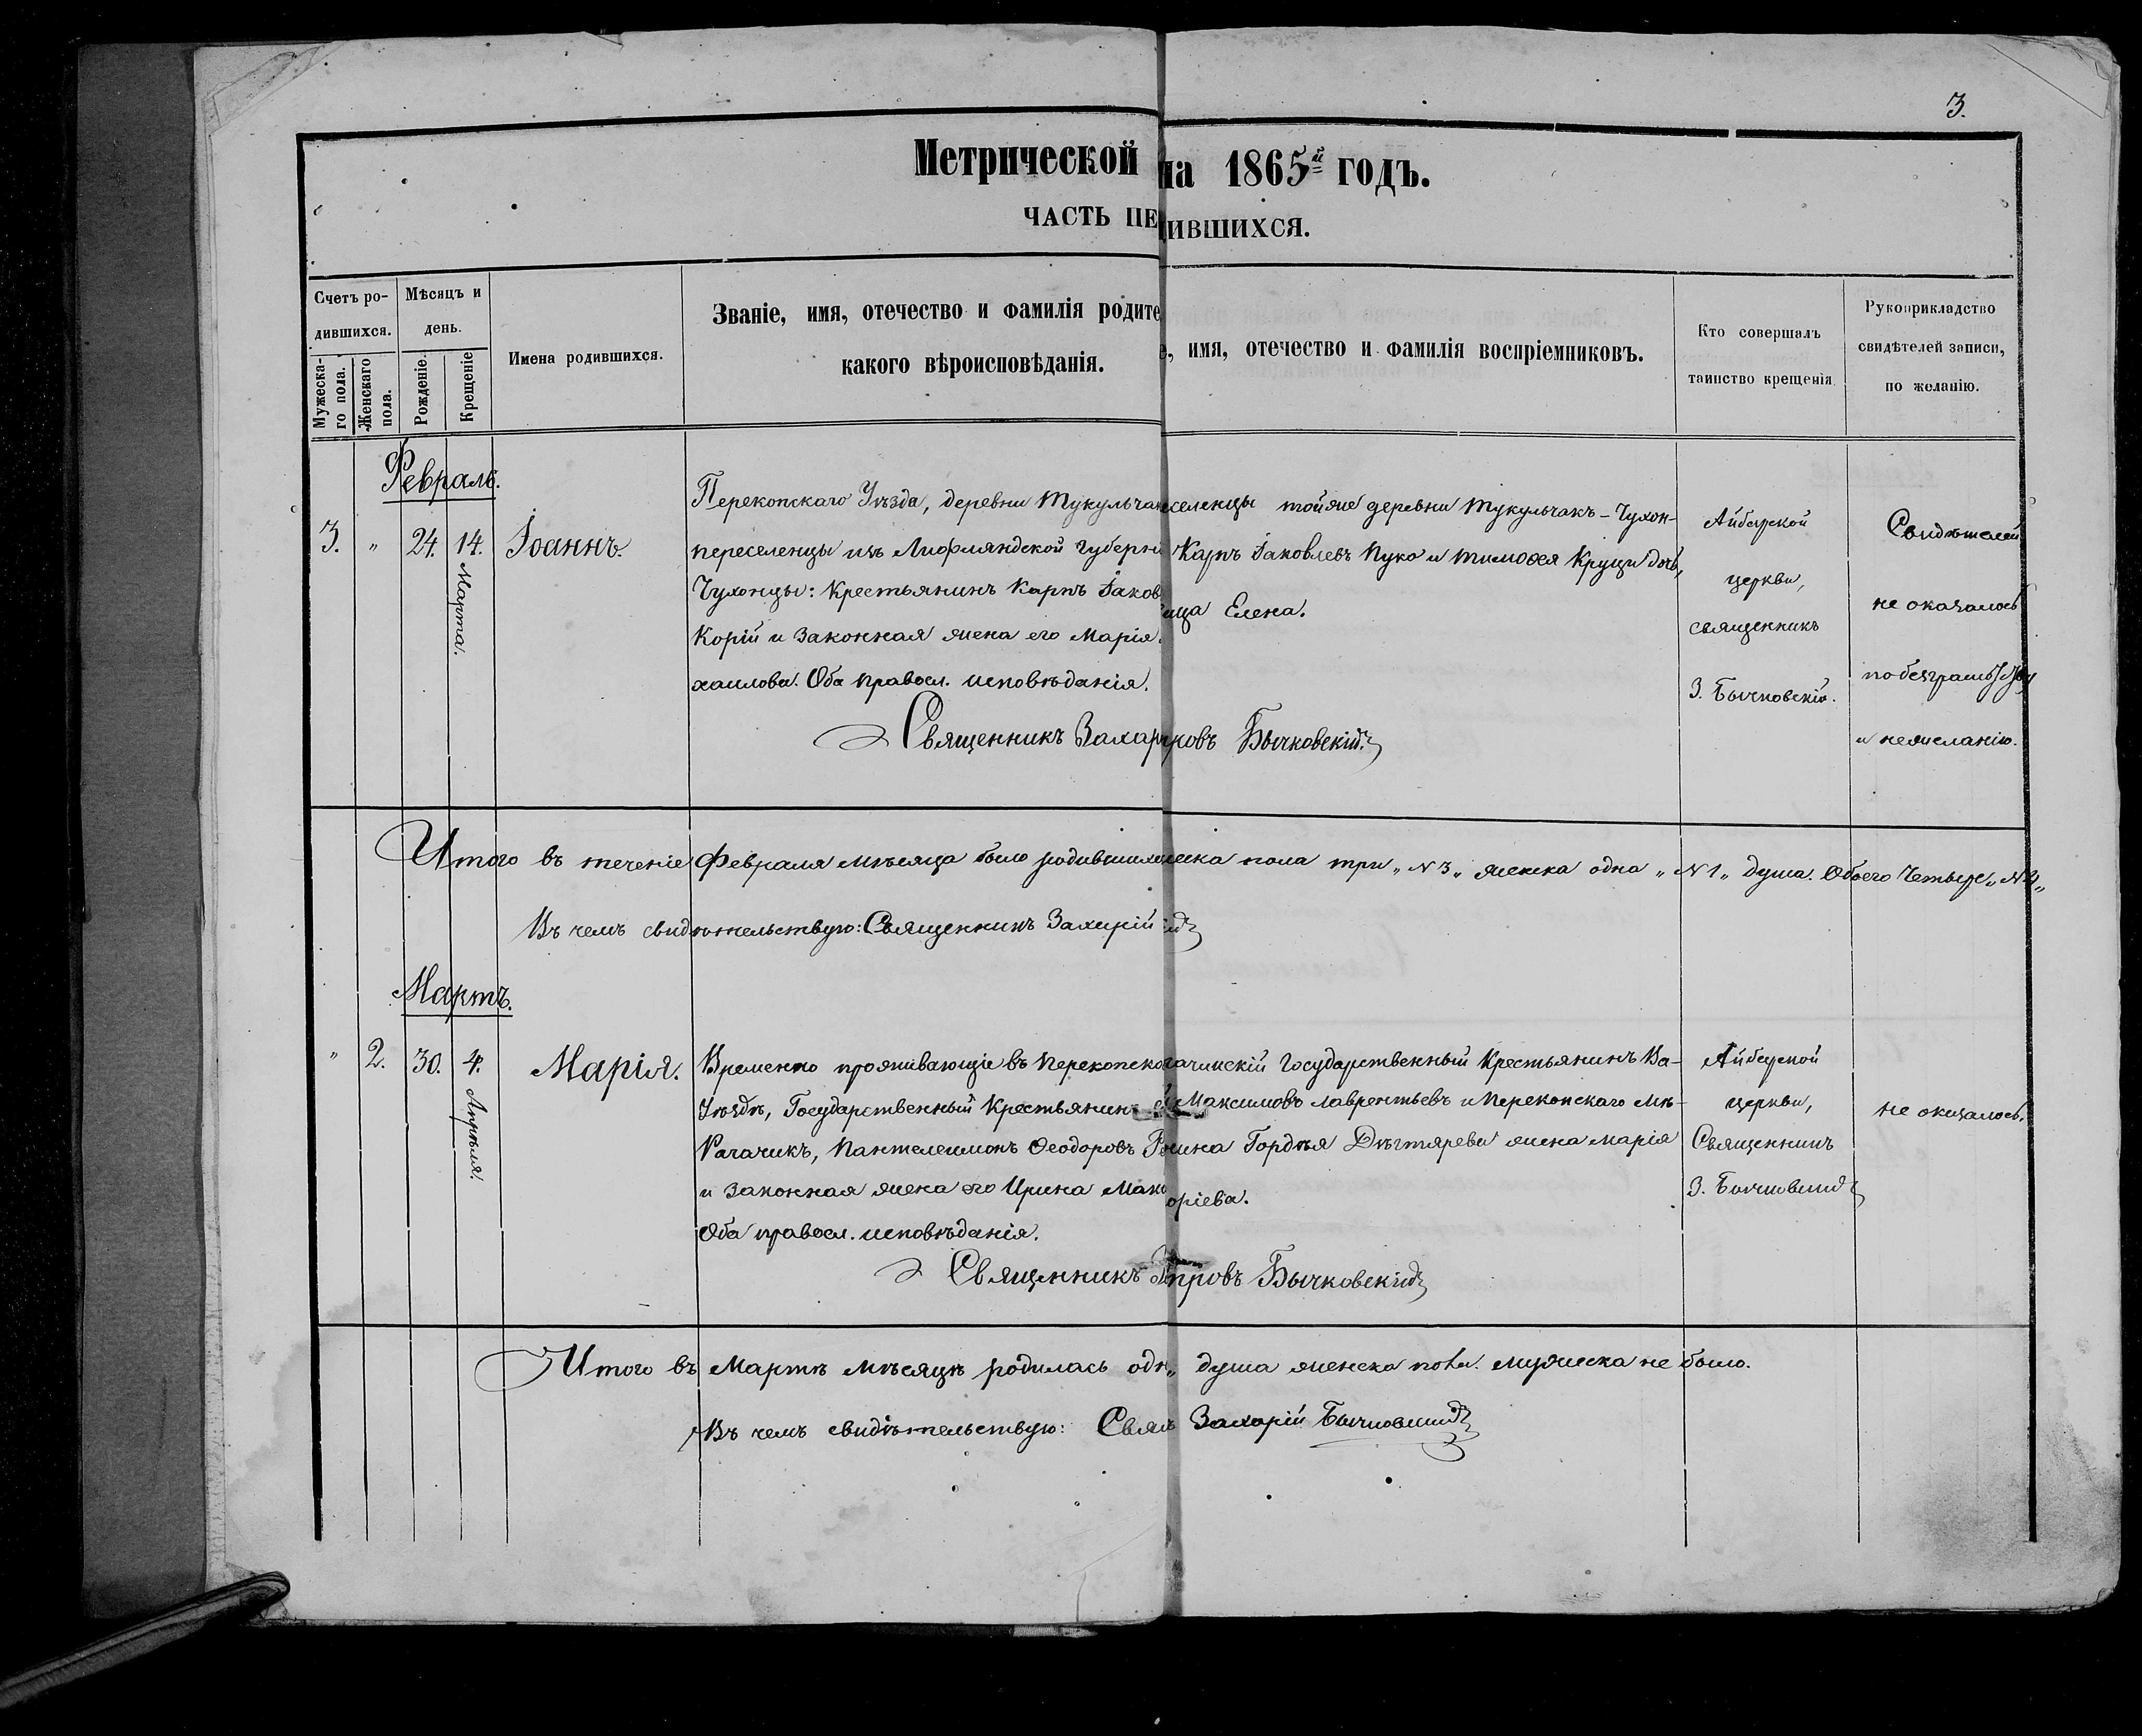 3.
Метрической на 1865й годъ.
ЧАСТЬ ПЕ ДИВШИХСЯ.
Счетъ родившихся.
Мужескаго пола.
Женскаго пола.
Мѣсяцъ и день.
Рожденіе.
Крещеніе
Имена родившихся.
Званіе, имя, отечество и фамилія родите
какого вѣроисповѣданія.
е, имя, отечество и фамилія воспріемниковъ.
Кто совершалъ
таинство крещенія.
Рукоприкладство
свидѣтелей записи,
по желанію.
Февраль.
3. " 24. 14. Марта. Іоаннъ.
Перекопскаго Уѣзда, деревни Тукульчак
переселенцы изъ Лифляндской Губерні
Чухонцы: Крестьянинъ Карпъ Іаков
Корій и законная жена его Марія
хаилова. Оба правосл. исповѣданія.
селенцы той же деревни Тукульчакъ-Чухон-
Карпъ Іаковлевъ Пуко и Тимоѳея Круци дочь,
ица Елена.
Айбарской
церкви,
священникъ
З. Бычковскій.
Свидѣтелей
не оказалось
по безграмотству
и нежеланію.
Священникъ Захар ровъ Бычковскій.
Итого въ теченіе Февраля мѣсяца было родившихся мужеска пола три „№3„ женска одна „№1„ душа. Обоего Четыре „№4„
Въ чемъ свидѣтельствую: Священникъ Захарій ій
Мартъ.
" 2. 30. 4. Апрѣля. Марія.
Временно проживающіе въ Перекопско
Уѣздѣ, Государственный Крестьянинъ
Рагачикъ, Пантелеимонъ Ѳеодоровъ
и законная жена его Ирина Мак
Оба правосл. исповѣданія.
гачикскій Государственный Крестьянинъ Ва-
Максимовъ Лаврентьевъ и Перекопскаго Мѣ-
щина Гордѣя Дѣгтярева жена Марія
оріева.
Айбарской
церкви,
Священникъ
З. Бычковскій
не оказалось.
Священникъ провъ Бычковскій
Итого въ Мартѣ мѣсяцѣ родилась одн душа женска пола. мужеска не было.
Въ чемъ свидѣтельствую: Свящ Захарій Бычковскій